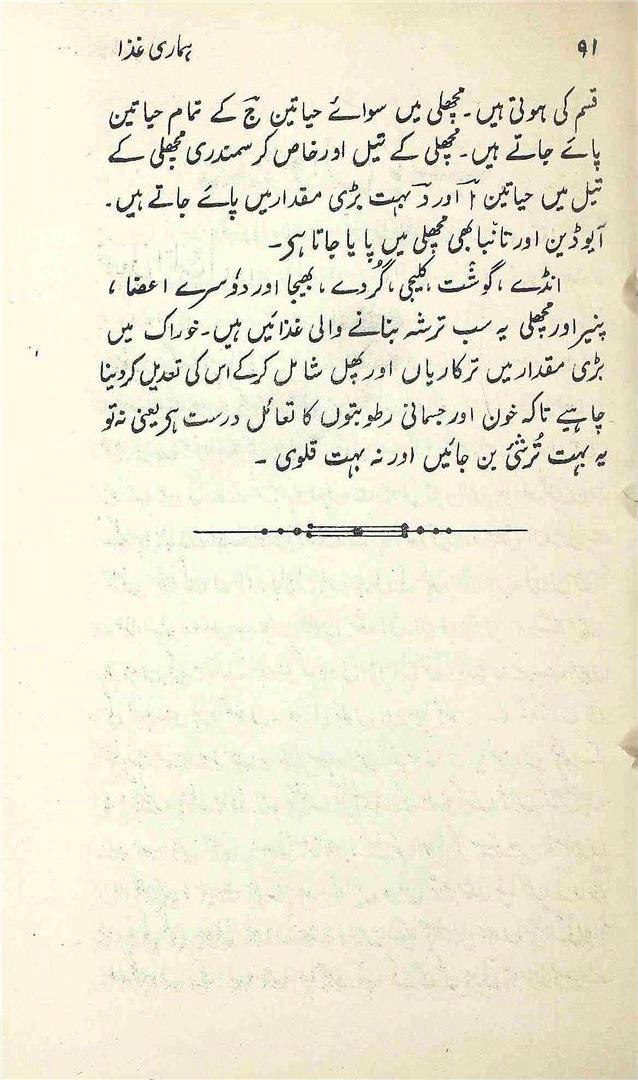 ۹۱ ہماری غذا
قسم کی ہوتی ہیں۔ مچھلی میں سوائے حیاتین ج کے تمام حیاتین
پائے جاتے ہیں۔ مچھلی کے تیل اور خاص کر سمندری مچھلی کے
تیل میں حیاتین ا اور د بہت بڑی مقدار میں پائے جاتے ہیں۔
آیوڈین اور تانبا بھی مچھلی میں پایا جاتا ہی۔
انڈے، گوشت، کلیجی، گُردے، بھیجا اور دوسرے اعضا،
پنیر اور مچھلی یہ سب ترشہ بنانے والی غذائیں ہیں۔ خوراک میں
بڑی مقدار میں ترکاریاں اور پھل شامل کرکے اس کی تعدیل کردینا
چاہیے تاکہ خون اور جسمانی رطوبتوں کا تعائل درست ہی یعنی نہ تو
یہ بہت تُرشئی بن جائیں اور نہ بہت قلوی۔